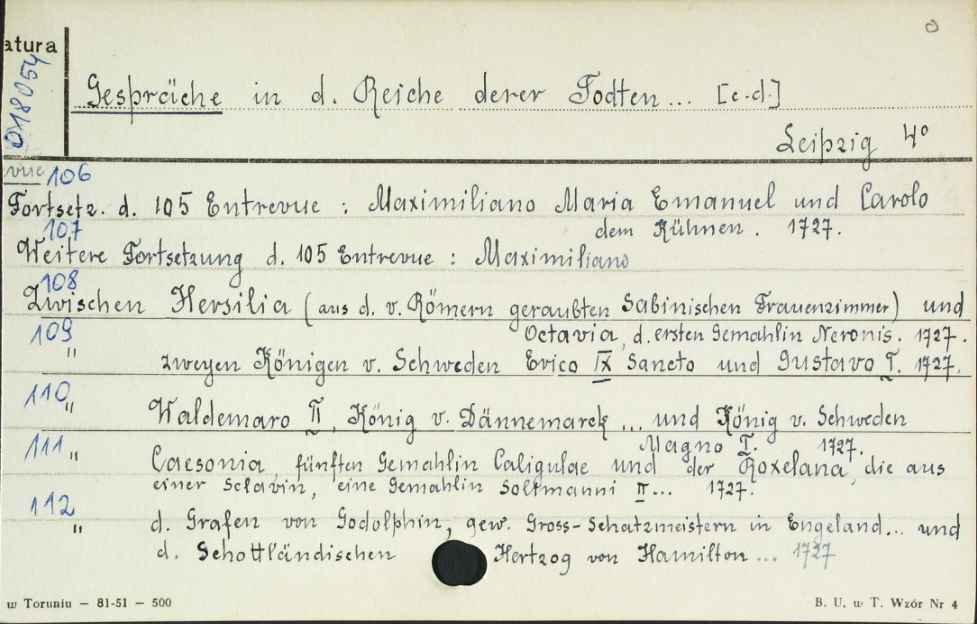 atura
018054
Gespräche in d. Reiche derer Todten... [c.d.]
Leipzig 4°
vue 106
Fortsetz. d. 105 Entrevue : Maximiliano Maria Emanuel und Carolo
dem Kühnen. 1727.
107
Weitere Fortsetzung d. 105 Entrevue : Maximiliano
108
Zwischen Hersilia (aus d. v. Römern geraubten Sabinischen Frauenzimmer) und
Octavia, d. ersten Gemahlin Neronis. 1727.
109
" zweyen Königen v. Schweden Erico IX Sancto und Gustavo I. 1727.
110
" Waldemaro II, König v. Dännemarck ... und König v. Schweden
Magno I. 1727.
111 " Caesonia, fünften Gemahlin Caligulae und der Roxelana, die aus
einer Sclavin, eine Gemahlin Solimanni II... 1727.
112
" d. Grafen von Godolphin, gew. Gross-Schatzmeistern in Engeland... und
d. Schottländischen Hertzog von Hamilton... 1727
w Toruniu — 81-51 — 500
B. U. w T. Wzór Nr 4